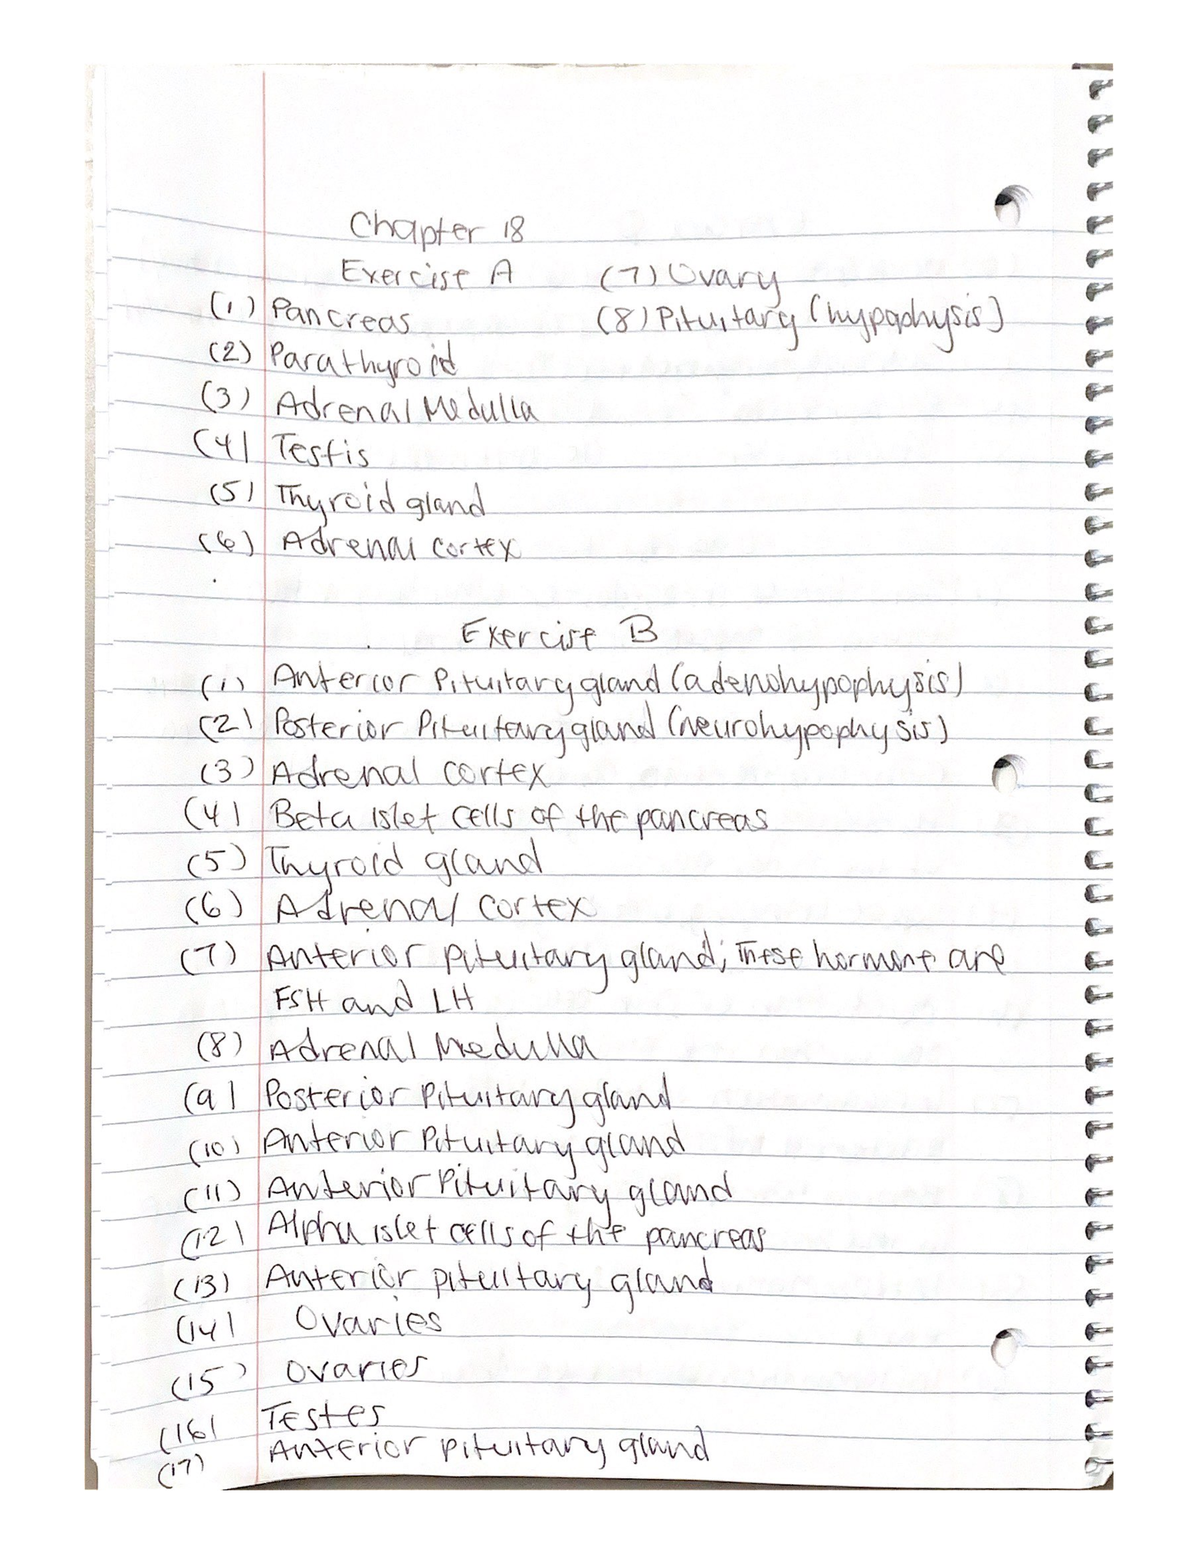 Chapter 18
Exercise A
(1) Pancreas
(2) Parathyroid
(3) Adrenal Medulla
(4) Testis
(5) Thyroid gland
(6) Adrenal cortex
(7) Ovary
(8) Pituitary (hypophysis)
Exercise B
(1) Anterior Pituitary gland (adenohypophysis)
(2) Posterior Pituitary gland (neurohypophysis)
(3) Adrenal cortex
(4) Beta islet cells of the pancreas
(5) Thyroid gland
(6) Adrenal cortex
(7) Anterior pituitary gland; These hormone are
FSH and LH
(8) Adrenal Medulla
(9) Posterior Pituitary gland
(10) Anterior Pituitary gland
(11) Anterior Pituitary gland
(12) Alpha islet cells of the pancreas
(13) Anterior pituitary gland
(14) Ovaries
(15) Ovaries
(16) Testes
(17) Anterior pituitary gland